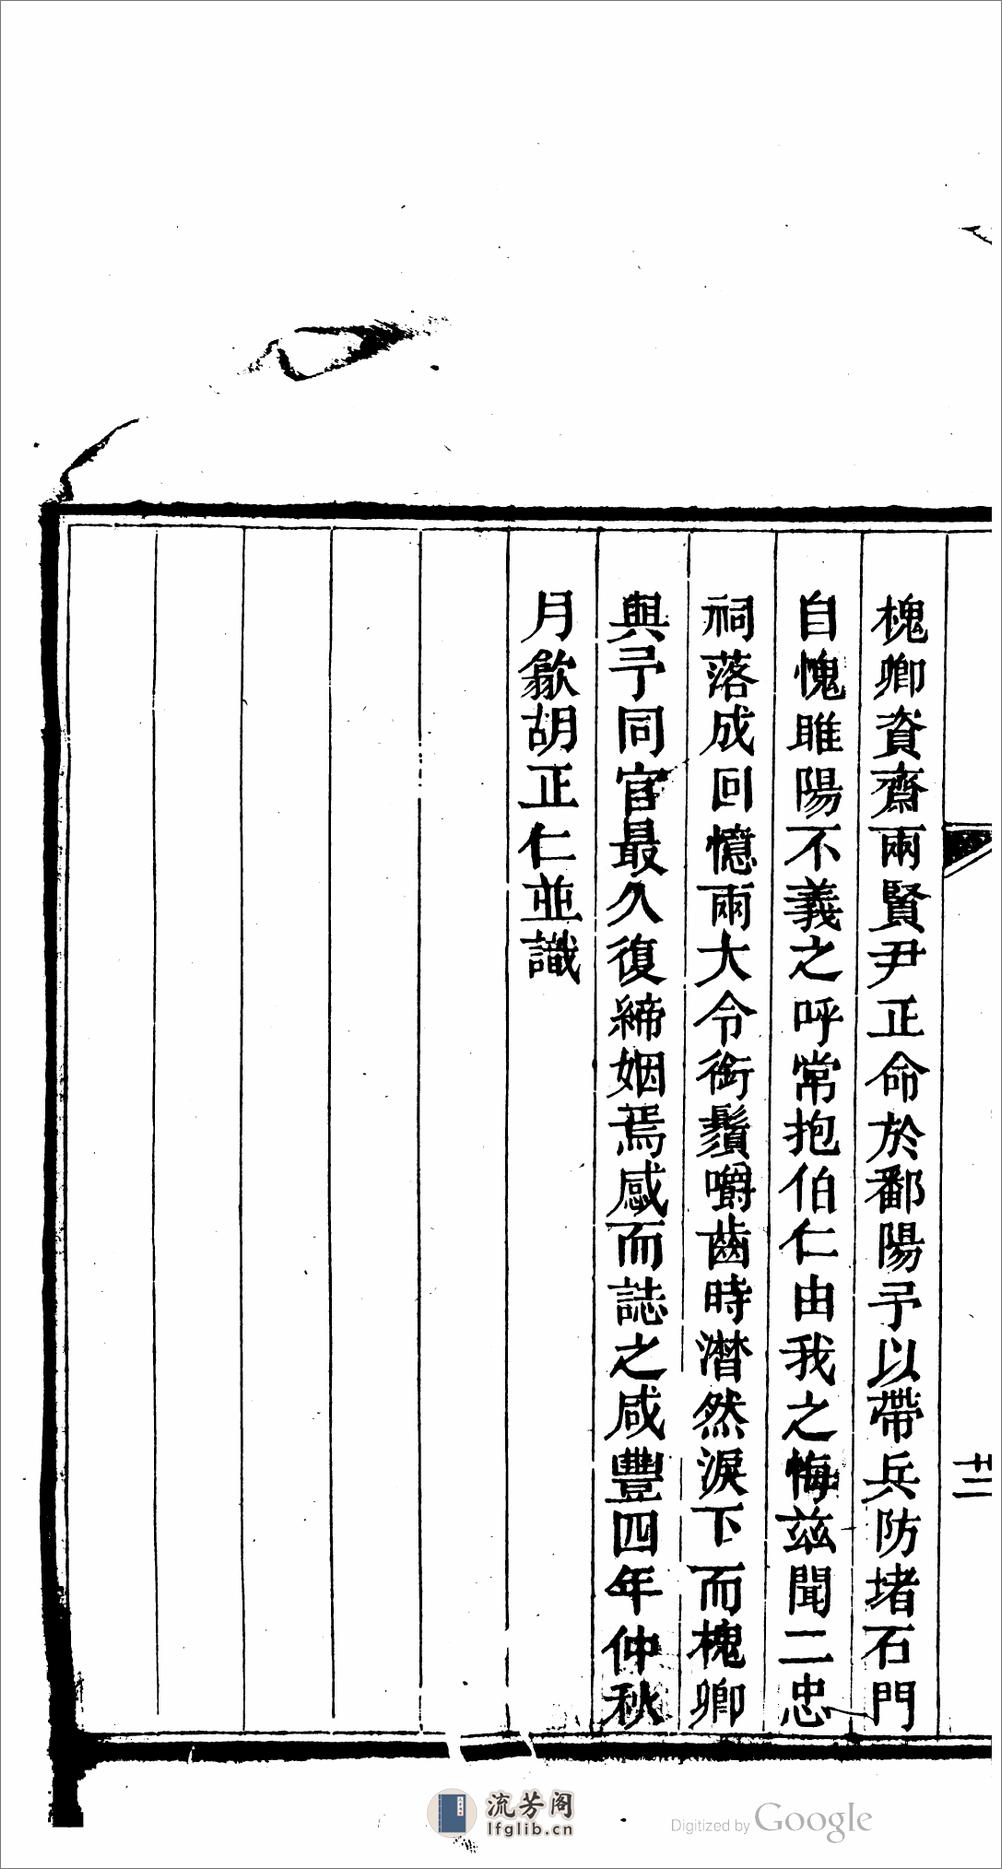 槐卿資齋兩賢尹正命於鄱陽予以帶兵防堵石門
自愧睢陽不義之呼常抱伯仁由我之悔茲聞二忠
祠落成回憶兩大令銜鬚嚼齒時潸然淚下而槐卿
與予同官最久復締姻焉感而誌之咸豐四年仲秋
月歙胡正仁並識
十二
流芳阁
lfglib.cn
Digitized by Google